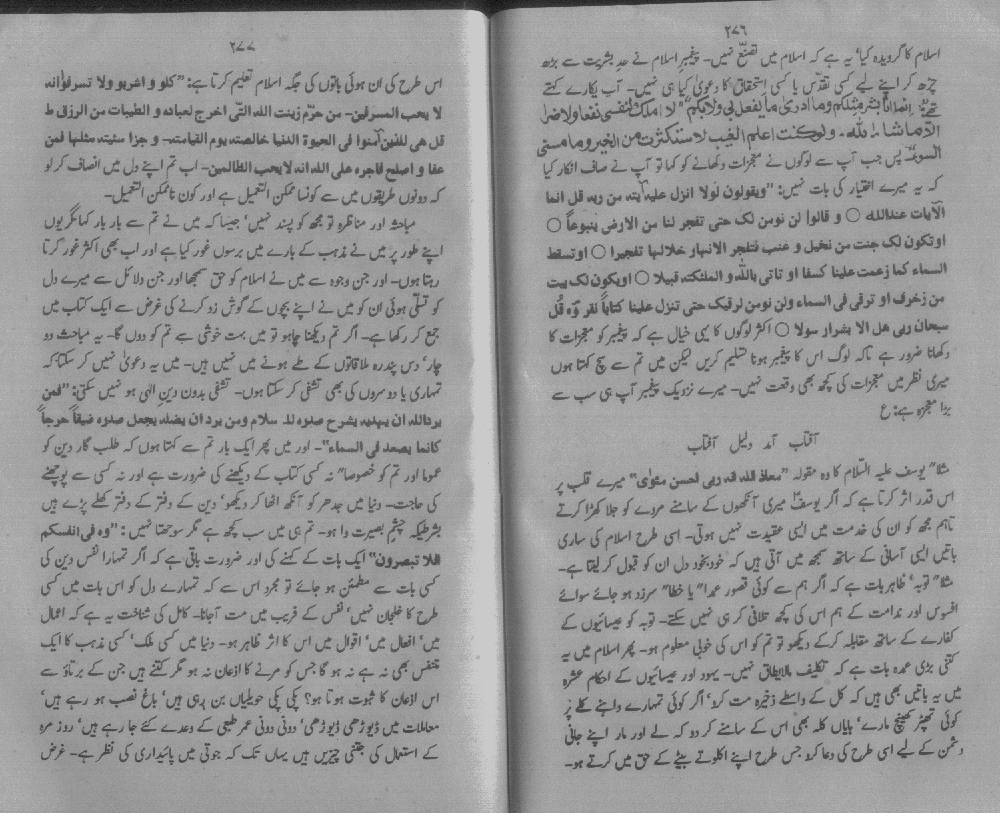 ۲۷۶
اسلام کا گرویدہ کیا‘ یہ ہے کہ اسلام میں تصنّع نہیں۔ پیغمبر اسلام نے حد بشریت سے بڑھ
چڑھ کر اپنے لیے کسی تقدّس یا کسی استحقاق کا دعویٰ کیا ہی نہیں۔ آپ پکارے کہتے
تھے: انما انا بشر مثلکم وما ادری ما یفعل بی ولا بکم“ ”لا املک لنفسی نفعا ولا ضرا
الا ماشاء اللہ۔ ولو کنت اعلم الغیب لاستکثرت من الخیر وما مسنی
السوء۔ پس جب آپ سے لوگوں نے معجزات دکھانے کو کہا تو آپ نے صاف انکار کیا
کہ یہ میرے اختیار کی بات نہیں: ”ویقولون لولا انزل علیہ آیتہ من ربہ قل انما
الآیات عنداللہ ○ و قالوا لن نومن لک حتی تفجر لنا من الارض ینبوعاً ○
اوتکون لک جنت من نخیل و عنب فتفجر الانہار خلالہا تفجیرا ○ اوتسقط
السماء کما زعمت علینا کسفا او تاتی باللہ و الملئکتہ قبیلا ○ اویکون لک بیت
من زخرف او ترقی فی السماء ولن نومن لرقیک حتی تنزل علینا کتاباً نقرؤہ قُل
سبحان ربی ھل الا بشرار سولا ○ اکثر لوگوں کا یہی خیال ہے کہ پیغمبر کو معجزات کا
دکھانا ضرور ہے تاکہ لوگ اس کا پیغمبر ہونا تسلیم کریں لیکن میں تم سے سچ کہتا ہوں
میری نظر میں معجزات کی کچھ بھی وقعت نہیں۔ میرے نزدیک پیغمبر آپ ہی سب سے
بڑا معجزہ ہے: ع
آفتاب آمد دلیل آفتاب
مثلا“ یوسف علیہ السّلام کا وہ مقولہ ”معاذ اللہ انہ ربی احسن مثوای“ میرے قلب پر
اس قدر اثر کرتا ہے کہ اگر یوسفؑ میری آنکھوں کے سامنے مردے کو جلا کھڑا کرتے
تاہم مجھ کو ان کی خدمت میں ایسی عقیدت نہیں ہوتی۔ اسی طرح اسلام کی ساری
باتیں ایسی آسانی کے ساتھ سمجھ میں آتی ہیں کہ خودبخود دل ان کو قبول کر لیتا ہے۔
مثلا“ توبہ‘ ظاہر بات ہے کہ اگر ہم سے کوئی قصور عمدا“ یا خطا“ سرزد ہو جائے سوائے
افسوس اور ندامت کے ہم اس کی کچھ تلافی کر ہی نہیں سکتے۔ توبہ کو عیسائیوں کے
کفارے کے ساتھ مقابلہ کرکے دیکھو تو تم کو اس کی خوبی معلوم ہو۔ پھر اسلام میں یہ
کتنی بڑی عمدہ بات ہے کہ تکلیف مالایطاق نہیں۔ یہود اور عیسائیوں کے احکام عشرہ
میں یہ باتیں بھی ہیں کہ کل کے واسطے ذخیرہ مت کرو‘ اگر کوئی تمہارے داہنے کلے پر
کوئی تھپڑ کھینچ مارے‘ بایاں کلہ بھی اس کے سامنے کر دو کہ لے اور مار اپنے جانی
دشمن کے لیے اسی طرح کی دعا کرو جس طرح اپنے اکلوتے بیٹے کے حق میں کرتے ہو۔
۲۷۷
اس طرح کی ان ہوئی باتوں کی جگہ اسلام تعلیم کرتا ہے: ”کلو و اشربو ولا تسرفوا انہ
لا یحب المسرفین۔ من حرّم زینت اللہ التّی اخرج لعبادہ و الطیبات من الرزق ط
قل ھی للذین آمنوا فی الحیوۃ الدنیا خالصتہ یوم القیامتہ۔ و جزا سئیتہ سئیتہ مثلہا فمن
عفا و اصلح فاجرہ علی اللہ انہ لایحب الظالمین۔ اب تم اپنے دل میں انصاف کر لو
کہ دونوں طریقوں میں سے کونسا ممکن التعمیل ہے اور کون ناممکن التعمیل۔
مباحثہ اور مناظرہ تو مجھ کو پسند نہیں‘ جیسا کہ میں نے تم سے بار بار کہا مگر یوں
اپنے طور پر میں نے مذہب کے بارے میں برسوں غور کیا ہے اور اب بھی اکثر غور کرتا
رہتا ہوں۔ اور جن وجوہ سے میں نے اسلام کو حق سمجھا اور جن دلائل سے میرے دل
کو تسلّی ہوئی ان کو میں نے اپنے بچوں کے گوش زد کرنے کی غرض سے ایک کتاب میں
جمع کر رکھا ہے۔ اگر تم دیکھنا چاہو تو میں بہت خوشی سے تم کو دوں گا۔ یہ مباحث دو
چار‘ دس پندرہ ملاقاتوں کے طے ہونے میں نہیں ہیں۔ میں یہ دعویٰ نہیں کر سکتا کہ
تمہاری یا دوسروں کی بھی تشفی کر سکتا ہوں۔ تشفی بدون دین الٰہی ہو نہیں سکتی: ”فمن
یرداللہ ان یہدیہ یشرح صدرہ للا سلام ومن یرد ان یضلہ یجعل صدرہ ضیقاً حرجاً
کانما یصعد فی السماء“۔ اور میں پھر ایک بار تم سے کہتا ہوں کہ طلب گار دین کو
عموما اور تم کو خصوصا“ نہ کسی کتاب کے دیکھنے کی ضرورت ہے اور نہ کسی سے پوچھنے
کی حاجت۔ دنیا میں جدھر کو آنکھ اٹھا کر دیکھو‘ دین کے دفتر کے دفتر کھلے پڑے ہیں
بشرطیکہ چشم بصیرت وا ہو۔ تم ہی میں سب کچھ ہے مگر سوجھتا نہیں: ”وہ فی انفسکم
افلا تبصرون“ ایک بات کے کہنے کی اور ضرورت باقی ہے کہ اگر تمہارا نفس دین کی
کسی بات سے مطمئن ہو جائے تو مجرد اس سے کہ تمہارے دل کو اس بات میں کسی
طرح کا خلجان نہیں‘ نفس کے فریب میں مت آجانا۔ کامل کی شناخت یہ ہے کہ اعمال
میں‘ افعال میں‘ اقوال میں اس کا اثر ظاہر ہو۔ دنیا میں کسی ملک‘ کسی مذہب کا ایک
متنفس بھی نہ ہے نہ ہو گا جس کو مرنے کا اذعان نہ ہو مگر کتنے ہیں جن کے برتاؤ سے
اس اذعان کا ثبوت ہوتا ہو؟ پکی پکی حویلیاں بن رہی ہیں‘ باغ نصب ہو رہے ہیں‘
معاملات میں ڈیوڑھی ڈیوڑھی‘ دونی دونی عمر طبعی کے وعدے کئے جا رہے ہیں‘ روز مرہ
کے استعمال کی جتنی چیزیں ہیں یہاں تک کہ جوتی میں پائیداری کی نظر ہے۔ غرض